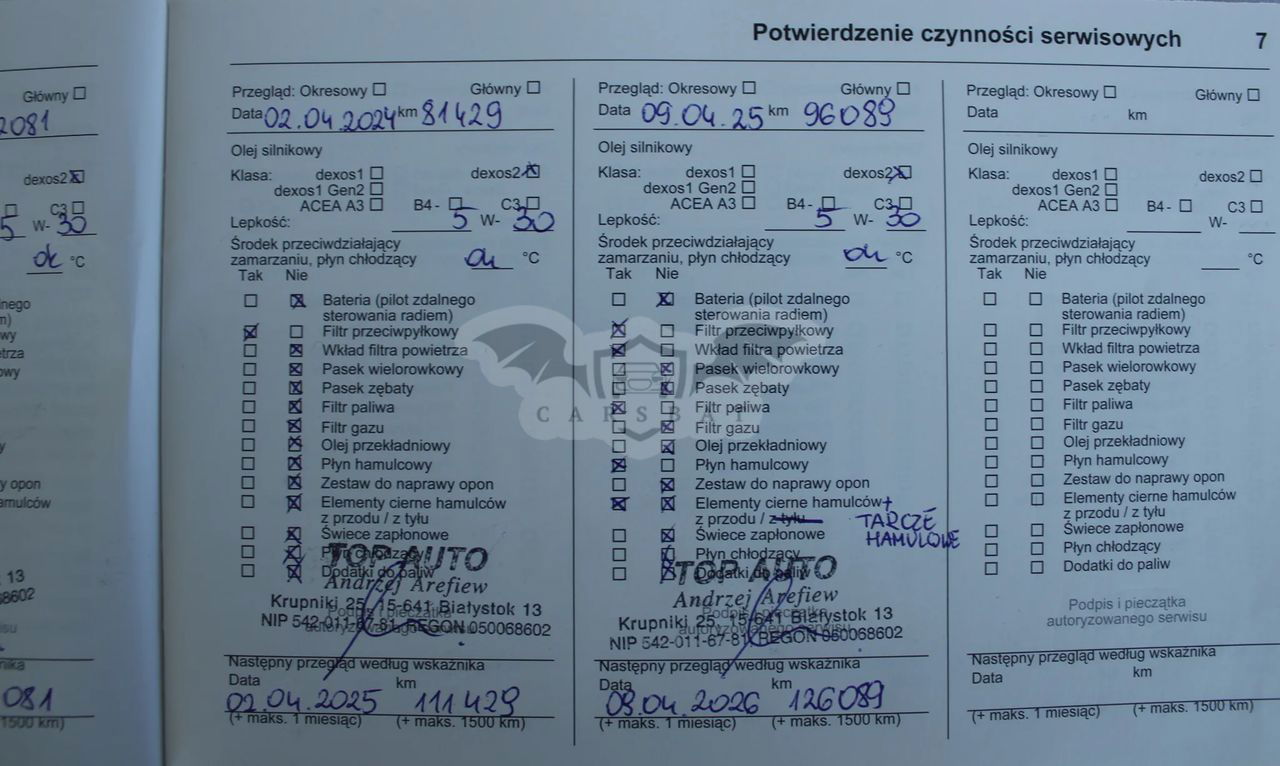 Potwierdzenie czynności serwisowych 7
Główny ☐
2081
dexos2 ☒
☐ C3 ☐
5 W- 30
ok °C
nego
m)
wy
trza
owy
y
y opon
amulców
13
8602
isu
nika
081
1500 km)
Przegląd: Okresowy ☐ Główny ☐
Data 02.04.2024 km 81429
Olej silnikowy
Klasa: dexos1 ☐ dexos2 ☒
dexos1 Gen2 ☐
ACEA A3 ☐ B4 - ☐ C3 ☐
Lepkość: 5 W- 30
Środek przeciwdziałający
zamarzaniu, płyn chłodzący ok °C
Tak Nie
☐ ☒ Bateria (pilot zdalnego
sterowania radiem)
☒ ☐ Filtr przeciwpyłkowy
☐ ☒ Wkład filtra powietrza
☐ ☒ Pasek wielorowkowy
☐ ☒ Pasek zębaty
☐ ☒ Filtr paliwa
☐ ☒ Filtr gazu
☐ ☒ Olej przekładniowy
☐ ☒ Płyn hamulcowy
☐ ☒ Zestaw do naprawy opon
☐ ☒ Elementy cierne hamulców
z przodu / z tyłu
☐ ☒ Świece zapłonowe
☐ ☒ Płyn chłodzący
☐ ☒ Dodatki do paliw
TOP AUTO
Andrzej Arefiew
Krupniki 25, 15-641 Białystok 13
NIP 542-011-67-81 REGON 050068602
Podpis i pieczątka
autoryzowanego serwisu
Następny przegląd według wskaźnika
Data km
02.04.2025 111429
(+ maks. 1 miesiąc) (+ maks. 1500 km)
Przegląd: Okresowy ☐ Główny ☐
Data 09.04.25 km 96089
Olej silnikowy
Klasa: dexos1 ☐ dexos2 ☒
dexos1 Gen2 ☐
ACEA A3 ☐ B4 - ☐ C3 ☐
Lepkość: 5 W- 30
Środek przeciwdziałający
zamarzaniu, płyn chłodzący ok °C
Tak Nie
☐ ☒ Bateria (pilot zdalnego
sterowania radiem)
☒ ☐ Filtr przeciwpyłkowy
☒ ☐ Wkład filtra powietrza
☐ ☒ Pasek wielorowkowy
☐ ☒ Pasek zębaty
☒ ☐ Filtr paliwa
☐ ☒ Filtr gazu
☐ ☒ Olej przekładniowy
☒ ☐ Płyn hamulcowy
☐ ☒ Zestaw do naprawy opon
☒ ☒ Elementy cierne hamulców +
z przodu / z tyłu TARCZE
HAMULOWE
☐ ☒ Świece zapłonowe
☐ ☒ Płyn chłodzący
☐ ☒ Dodatki do paliw
TOP AUTO
Andrzej Arefiew
Krupniki 25, 15-641 Białystok 13
NIP 542-011-67-81 REGON 050068602
Podpis i pieczątka
autoryzowanego serwisu
Następny przegląd według wskaźnika
Data km
09.04.2026 126089
(+ maks. 1 miesiąc) (+ maks. 1500 km)
Przegląd: Okresowy ☐ Główny ☐
Data km
Olej silnikowy
Klasa: dexos1 ☐ dexos2 ☐
dexos1 Gen2 ☐
ACEA A3 ☐ B4 - ☐ C3 ☐
Lepkość: W-
Środek przeciwdziałający
zamarzaniu, płyn chłodzący °C
Tak Nie
☐ ☐ Bateria (pilot zdalnego
sterowania radiem)
☐ ☐ Filtr przeciwpyłkowy
☐ ☐ Wkład filtra powietrza
☐ ☐ Pasek wielorowkowy
☐ ☐ Pasek zębaty
☐ ☐ Filtr paliwa
☐ ☐ Filtr gazu
☐ ☐ Olej przekładniowy
☐ ☐ Płyn hamulcowy
☐ ☐ Zestaw do naprawy opon
☐ ☐ Elementy cierne hamulców
z przodu / z tyłu
☐ ☐ Świece zapłonowe
☐ ☐ Płyn chłodzący
☐ ☐ Dodatki do paliw
Podpis i pieczątka
autoryzowanego serwisu
Następny przegląd według wskaźnika
Data km
(+ maks. 1 miesiąc) (+ maks. 1500 km)
CARSBAT